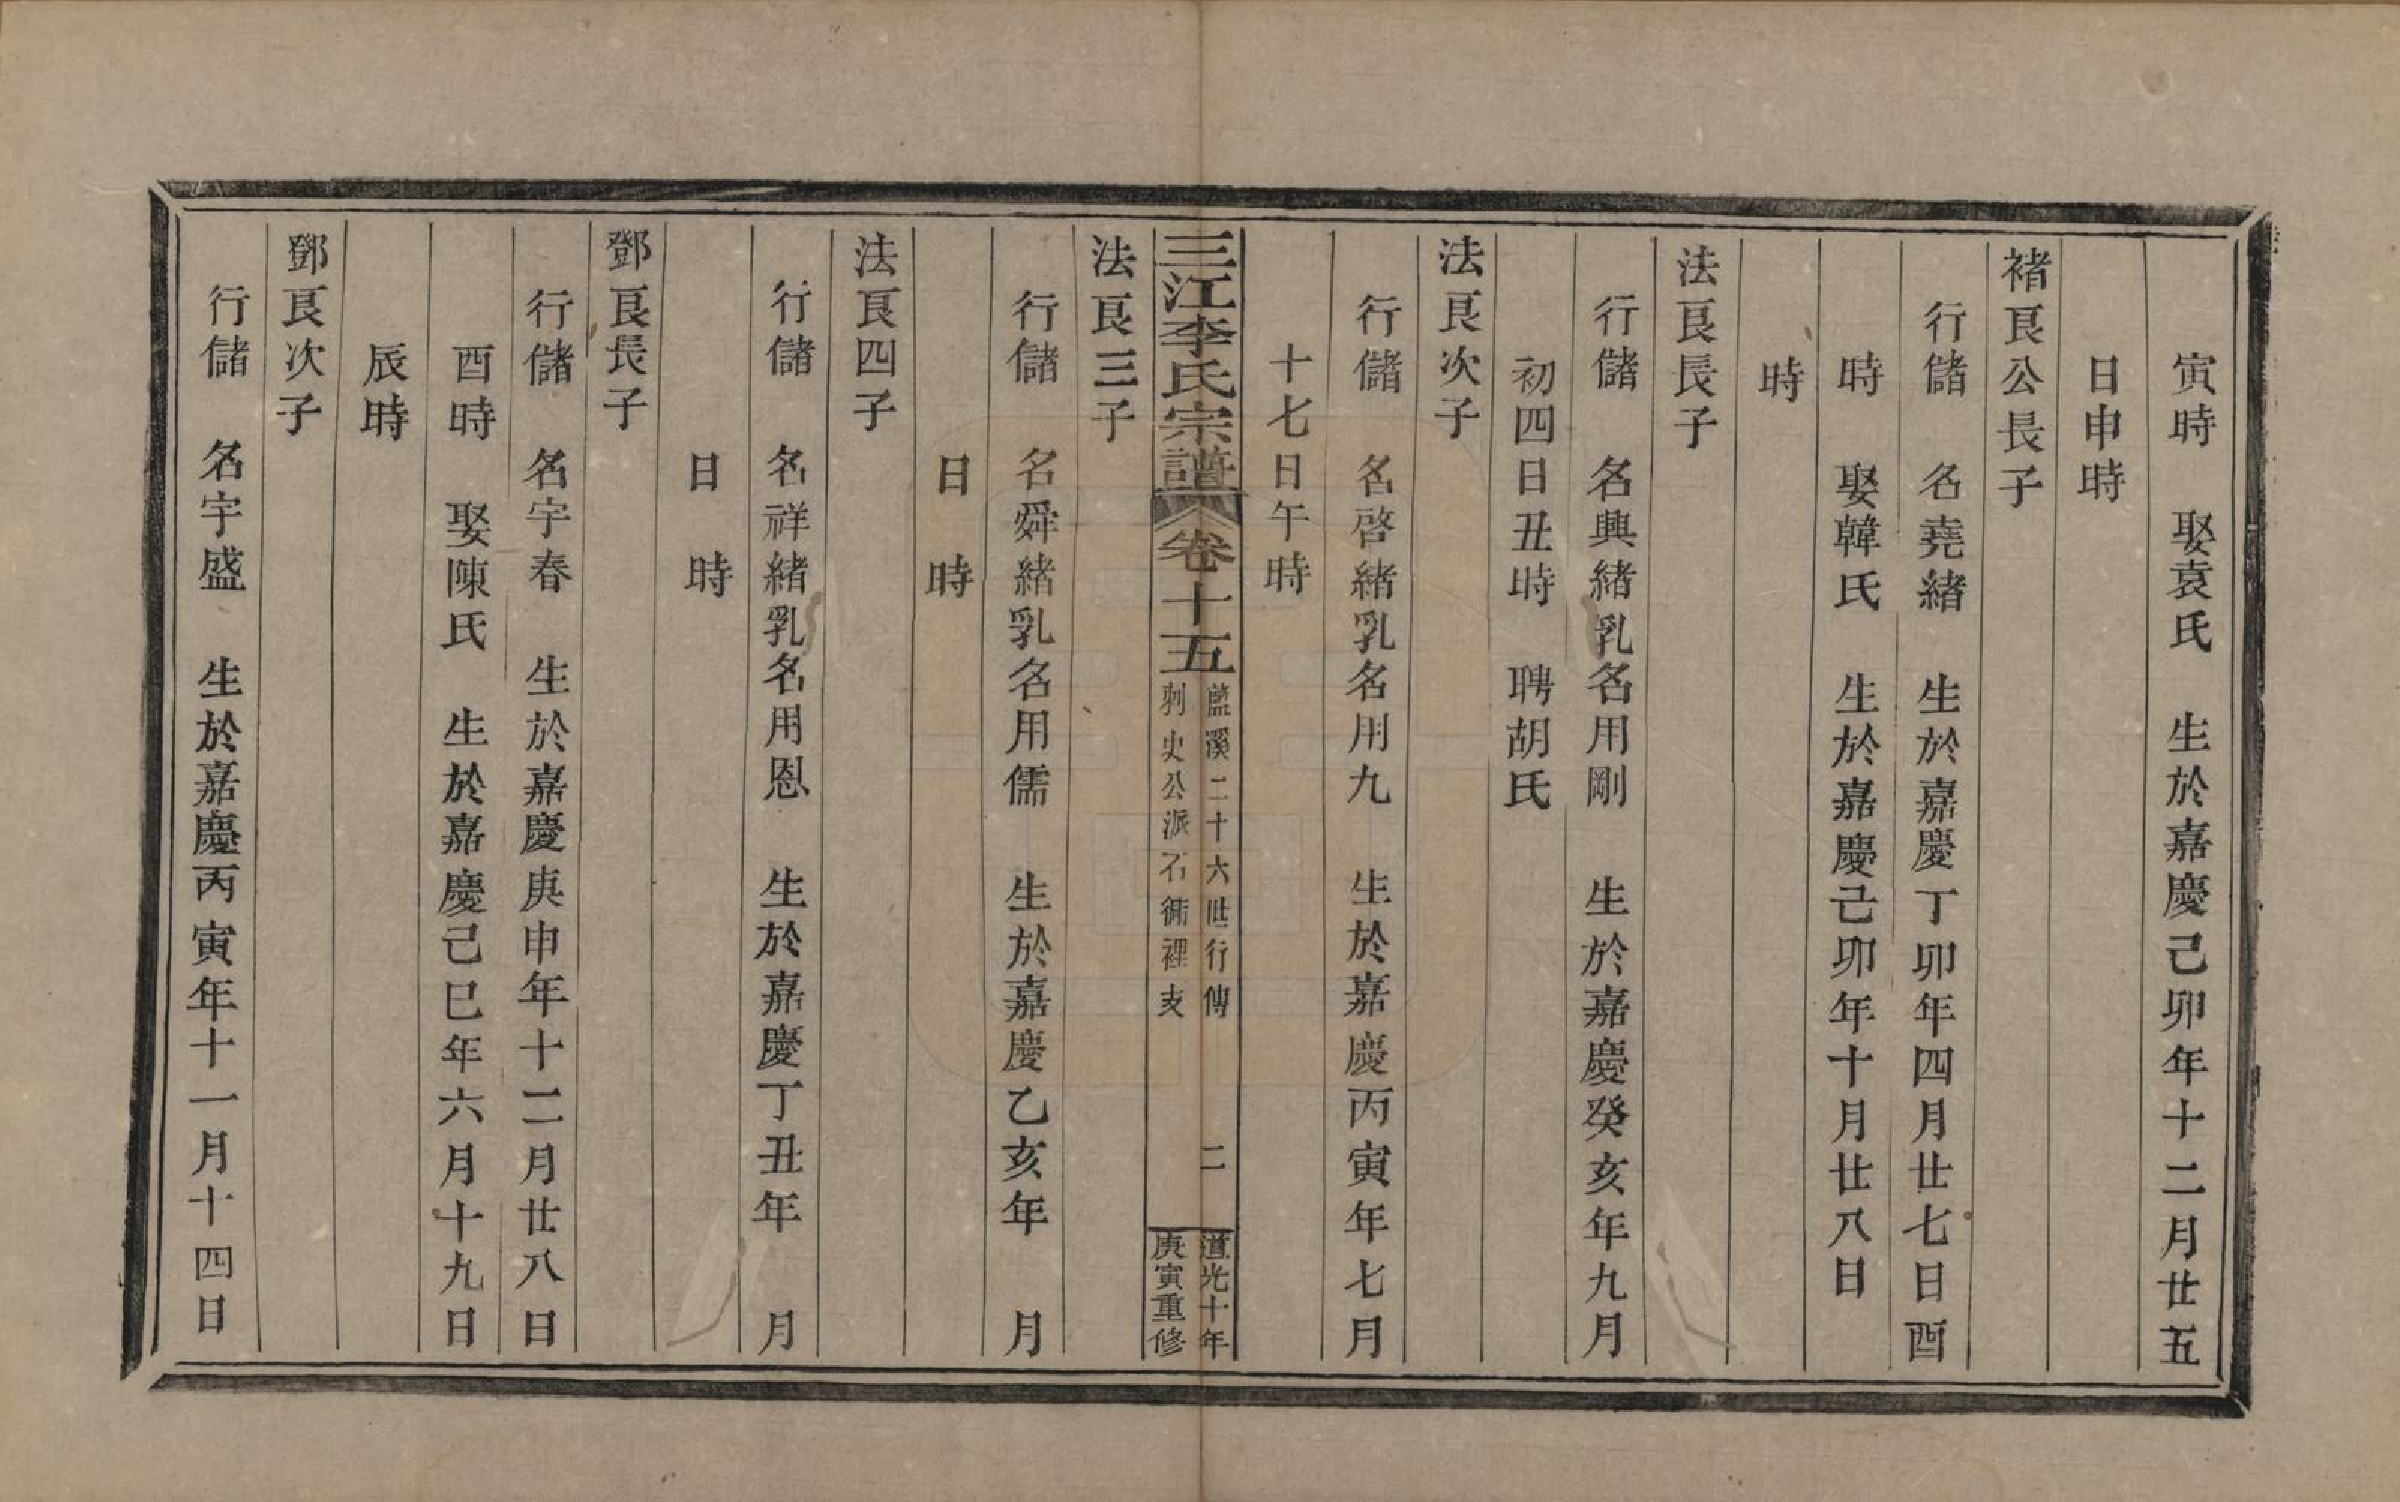 寅時　娶袁氏　生於嘉慶己卯年十二月廿五
日申時
褚良公長子
行儲　名堯緒　生於嘉慶丁卯年四月廿七日酉
時　娶韓氏　生於嘉慶己卯年十月廿八日
時
法良長子
行儲　名興緒乳名用剛　生於嘉慶癸亥年九月
初四日丑時　聘胡氏
法良次子
行儲　名啓緒乳名用九　生於嘉慶丙寅年七月
十七日午時
三江李氏宗譜　卷十五
藍溪二十六世行傳
刺史公派石衕裡支
二
道光十年
庚寅重修
法良三子
行儲　名舜緒乳名用儒　生於嘉慶乙亥年　月
日　時
法良四子
行儲　名祥緒乳名用恩　生於嘉慶丁丑年　月
日　時
鄧良長子
行儲　名宇春　生於嘉慶庚申年十二月廿八日
酉時　娶陳氏　生於嘉慶己巳年六月十九日
辰時
鄧良次子
行儲　名宇盛　生於嘉慶丙寅年十一月十四日